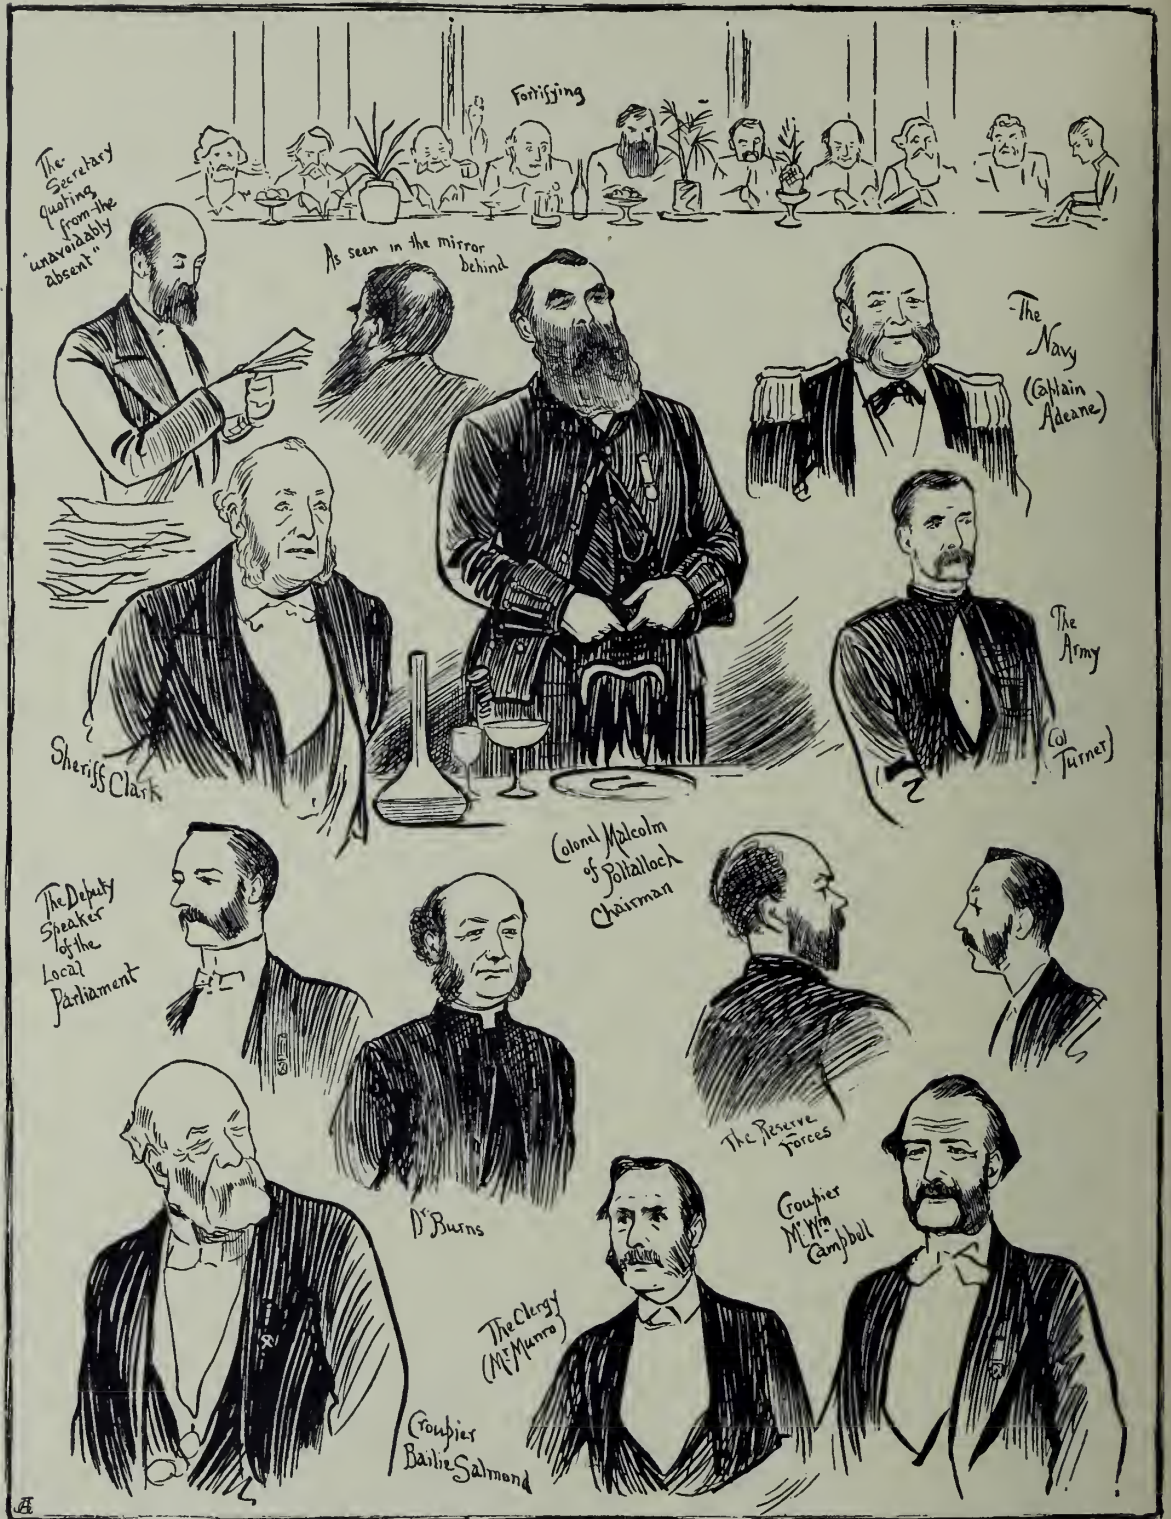 Fortifying
The
Secretary
quoting
from the
"unavoidably
absent"
As seen in the mirror
behind
The
Navy
(Captain
Adeane)
Sheriff Clark
The
Army
Col
Turner)
Colonel Malcolm
of Poltalloch
Chairman
The Deputy
Speaker
of the
Local
Parliament
Dr Burns
The Reserve
Forces
Croupier
Mr Wm
Campbell
The Clergy
(Mr Munro)
Croupier
Bailie Salmond